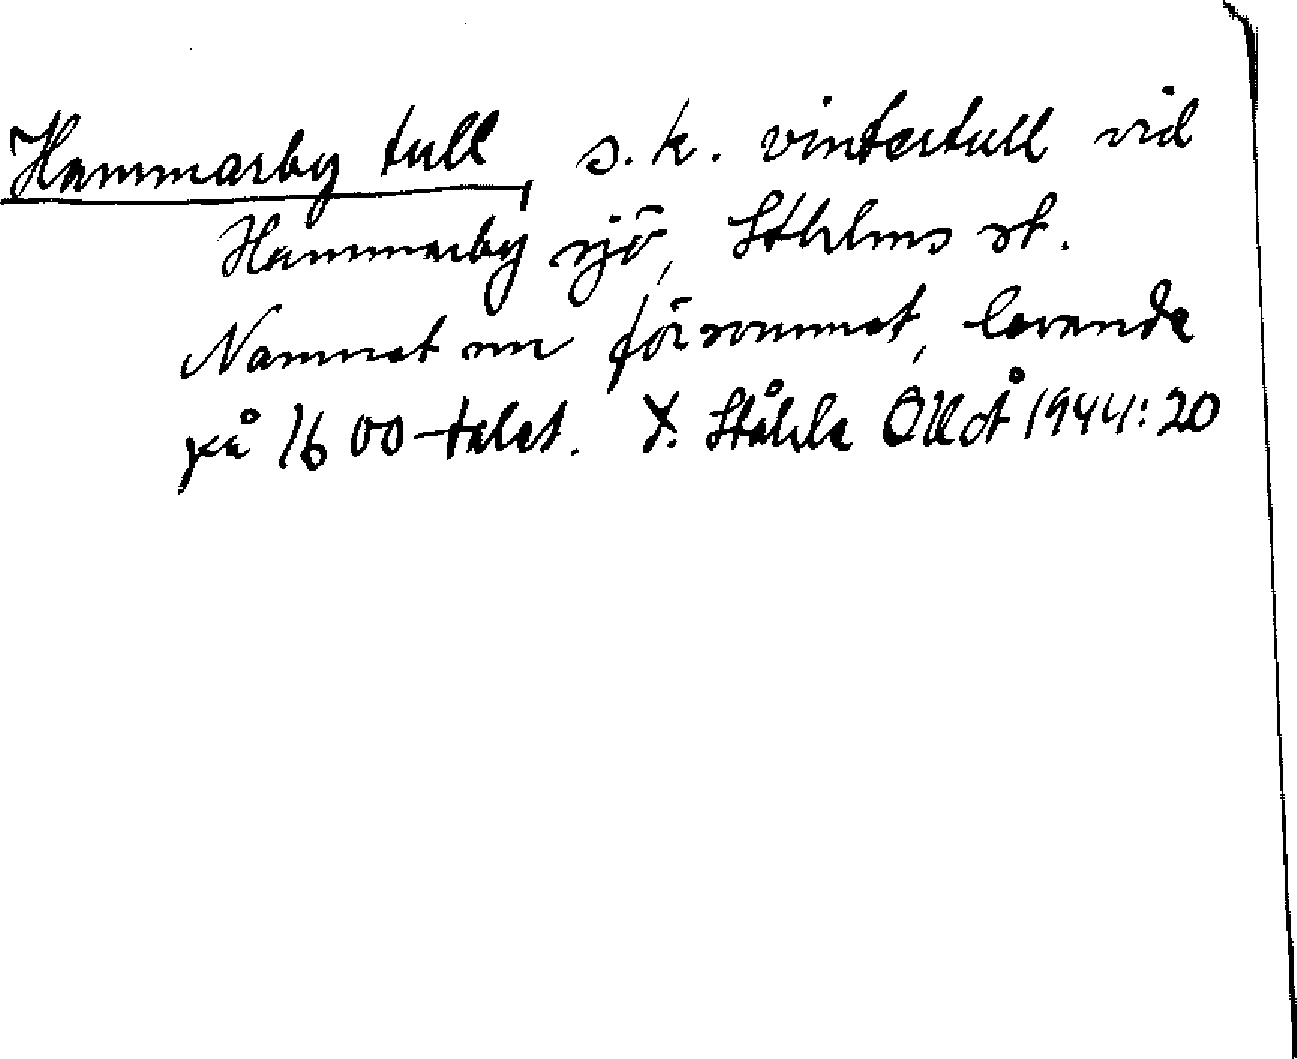 Hammarby tull, s.k. vintertull vid
Hammarby sjö, Sthlms st.
Namnet nu försvunnet, levande
på 1600-talet. Ståhle 1944:20